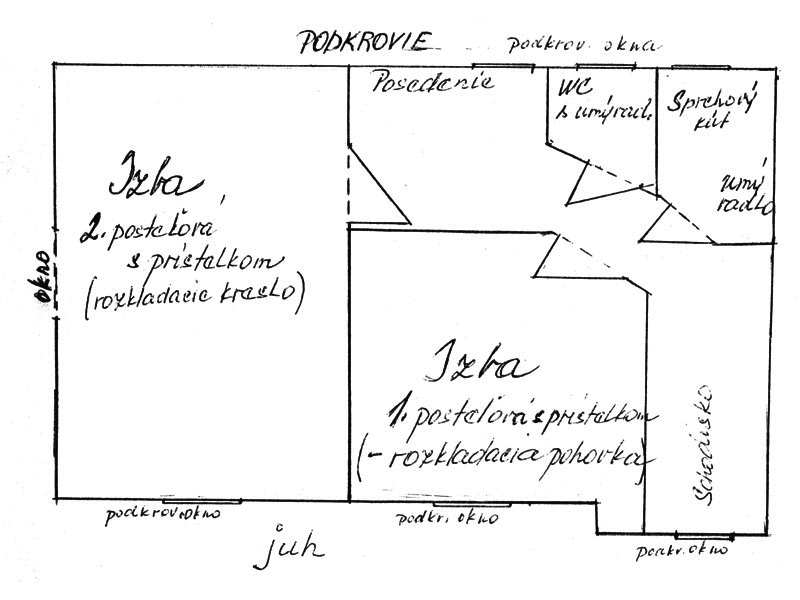 PODKROVIE
podkrov. okna
Posedenie
WC
s umývad.
Sprchový
kút
umý
vadlo
Izba
2. posteľová
s prístelkom
(rozkladacie kreslo)
okno
Izba
1. posteľová s prístelkom
(- rozkladacia pohovka)
Schodisko
podkrov. okno
podkr. okno
podkr. okno
juh